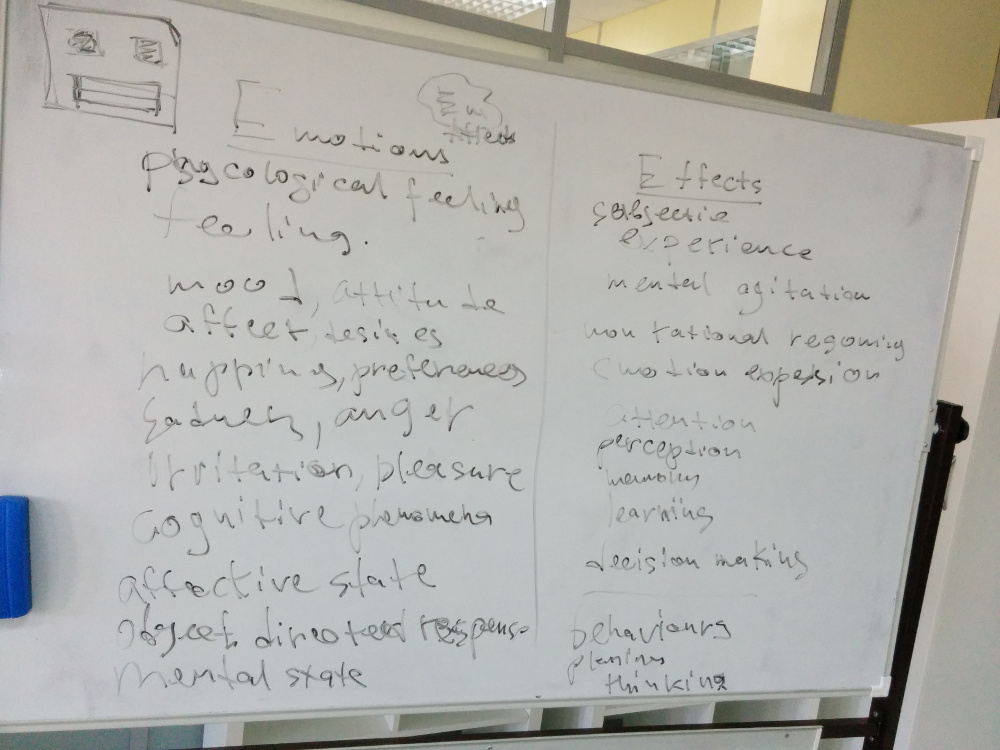 Emotions
Effects
psycological feeling
feeling.
mood, attitude
affect, desires
happping, preferences
Sadness, anger
irritation, pleasure
cognitive phenomena
affective state
object directed response
mental state
Effects
experience
mental agitation
non rational
emotion expession
attention
perception
memory
learning
decision making
behaviours
planning
thinking